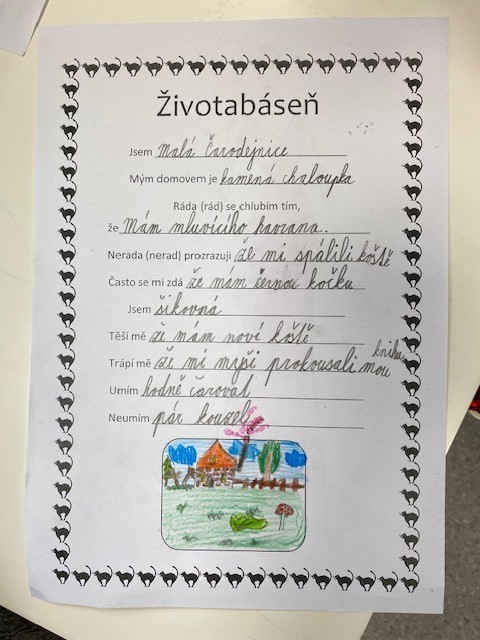 Životabáseň
Jsem Malá Čarodejnice
Mým domovem je kamená chaloupka
Ráda (rád) se chlubím tím,
že Mám mluvícího havrana.
Nerada (nerad) prozrazuji že mi spálili koště
Často se mi zdá že mám černou kočku
Jsem šikovná
Těší mě že mám nové koště
Trápí mě že mi myši prokousali mou knihu
Umím hodně čarovat
Neumím pár kouzel